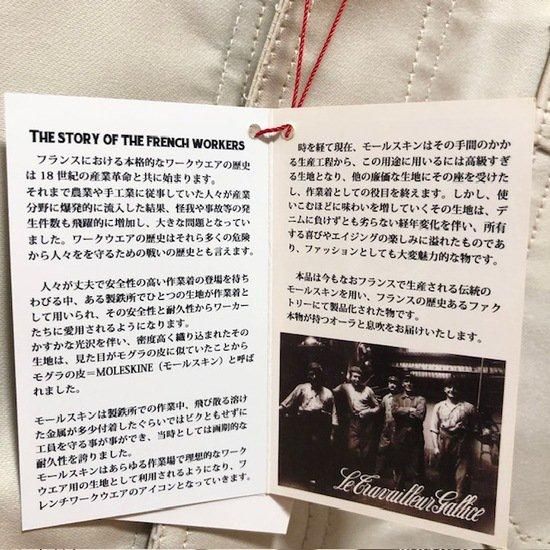 THE STORY OF THE FRENCH WORKERS
フランスにおける本格的なワークウエアの歴史
は 18 世紀の産業革命と共に始まります。
それまで農業や手工業に従事していた人々が産業
分野に爆発的に流入した結果、怪我や事故等の発
生件数も飛躍的に増加し、大きな問題となってい
ました。ワークウエアの歴史はそれら多くの危険
から人々をを守るための戦いの歴史とも言えます。
人々が丈夫で安全性の高い作業着の登場を待ち
わびる中、ある製鉄所でひとつの生地が作業着と
して用いられ、その安全性と耐久性からワーカー
たちに愛用されるようになります。
かすかな光沢を伴い、密度高く織り込まれたその
生地は、見た目がモグラの皮に似ていたことから
モグラの皮=MOLESKINE（モールスキン）と呼ば
れました。
モールスキンは製鉄所での作業中、飛び散る溶け
た金属が多少付着したぐらいではビクともせずに
工員を守る事が事ができ、当時としては画期的な
耐久性を誇りました。
モールスキンはあらゆる作業場で理想的なワーク
ウエア用の生地として利用されるようになり、フ
レンチワークウエアのアイコンとなっていきます。
時を経て現在、モールスキンはその手間のかか
る生産工程から、この用途に用いるには高級すぎ
る生地となり、他の廉価な生地にその座を受けわた
し、作業着としての役目を終えます。しかし、使
いこむほどに味わいを増していくその生地は、デ
ニムに負けずとも劣らない経年変化を伴い、所有
する喜びやエイジングの楽しみに溢れたものであ
り、ファッションとしても大変魅力的な物です。
本品は今もなおフランスで生産される伝統の
モールスキンを用い、フランスの歴史あるファク
トリーにて製品化された物です。
本物が持つオーラと息吹をお届けいたします。
Le Travailleur Gallice